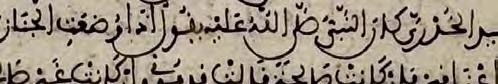 الخدري كان النبي صلى الله عليه يقول اذا وضعت الجنازة
فان كانت صالحة قالت قدموني وان كانت غير